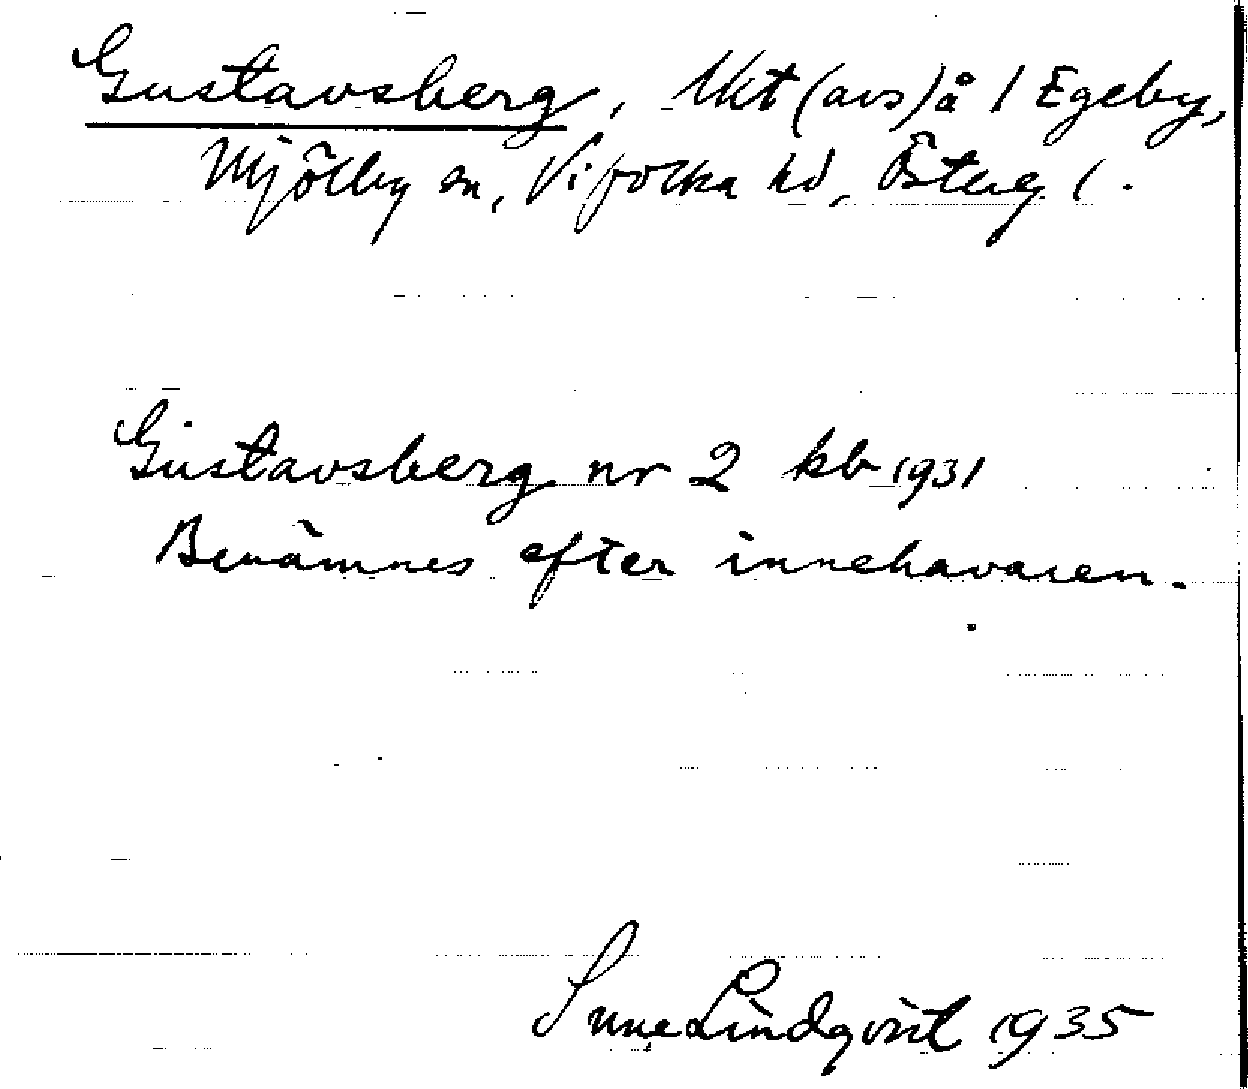 Gustavsberg, lkt (avs) å 1 Egeby,
Mjölby sn, Vifolka hd, Österg l.
Gustavsberg nr 2 kb 1931
Benämnes efter innehavaren.
Sune Lindqvist 1935